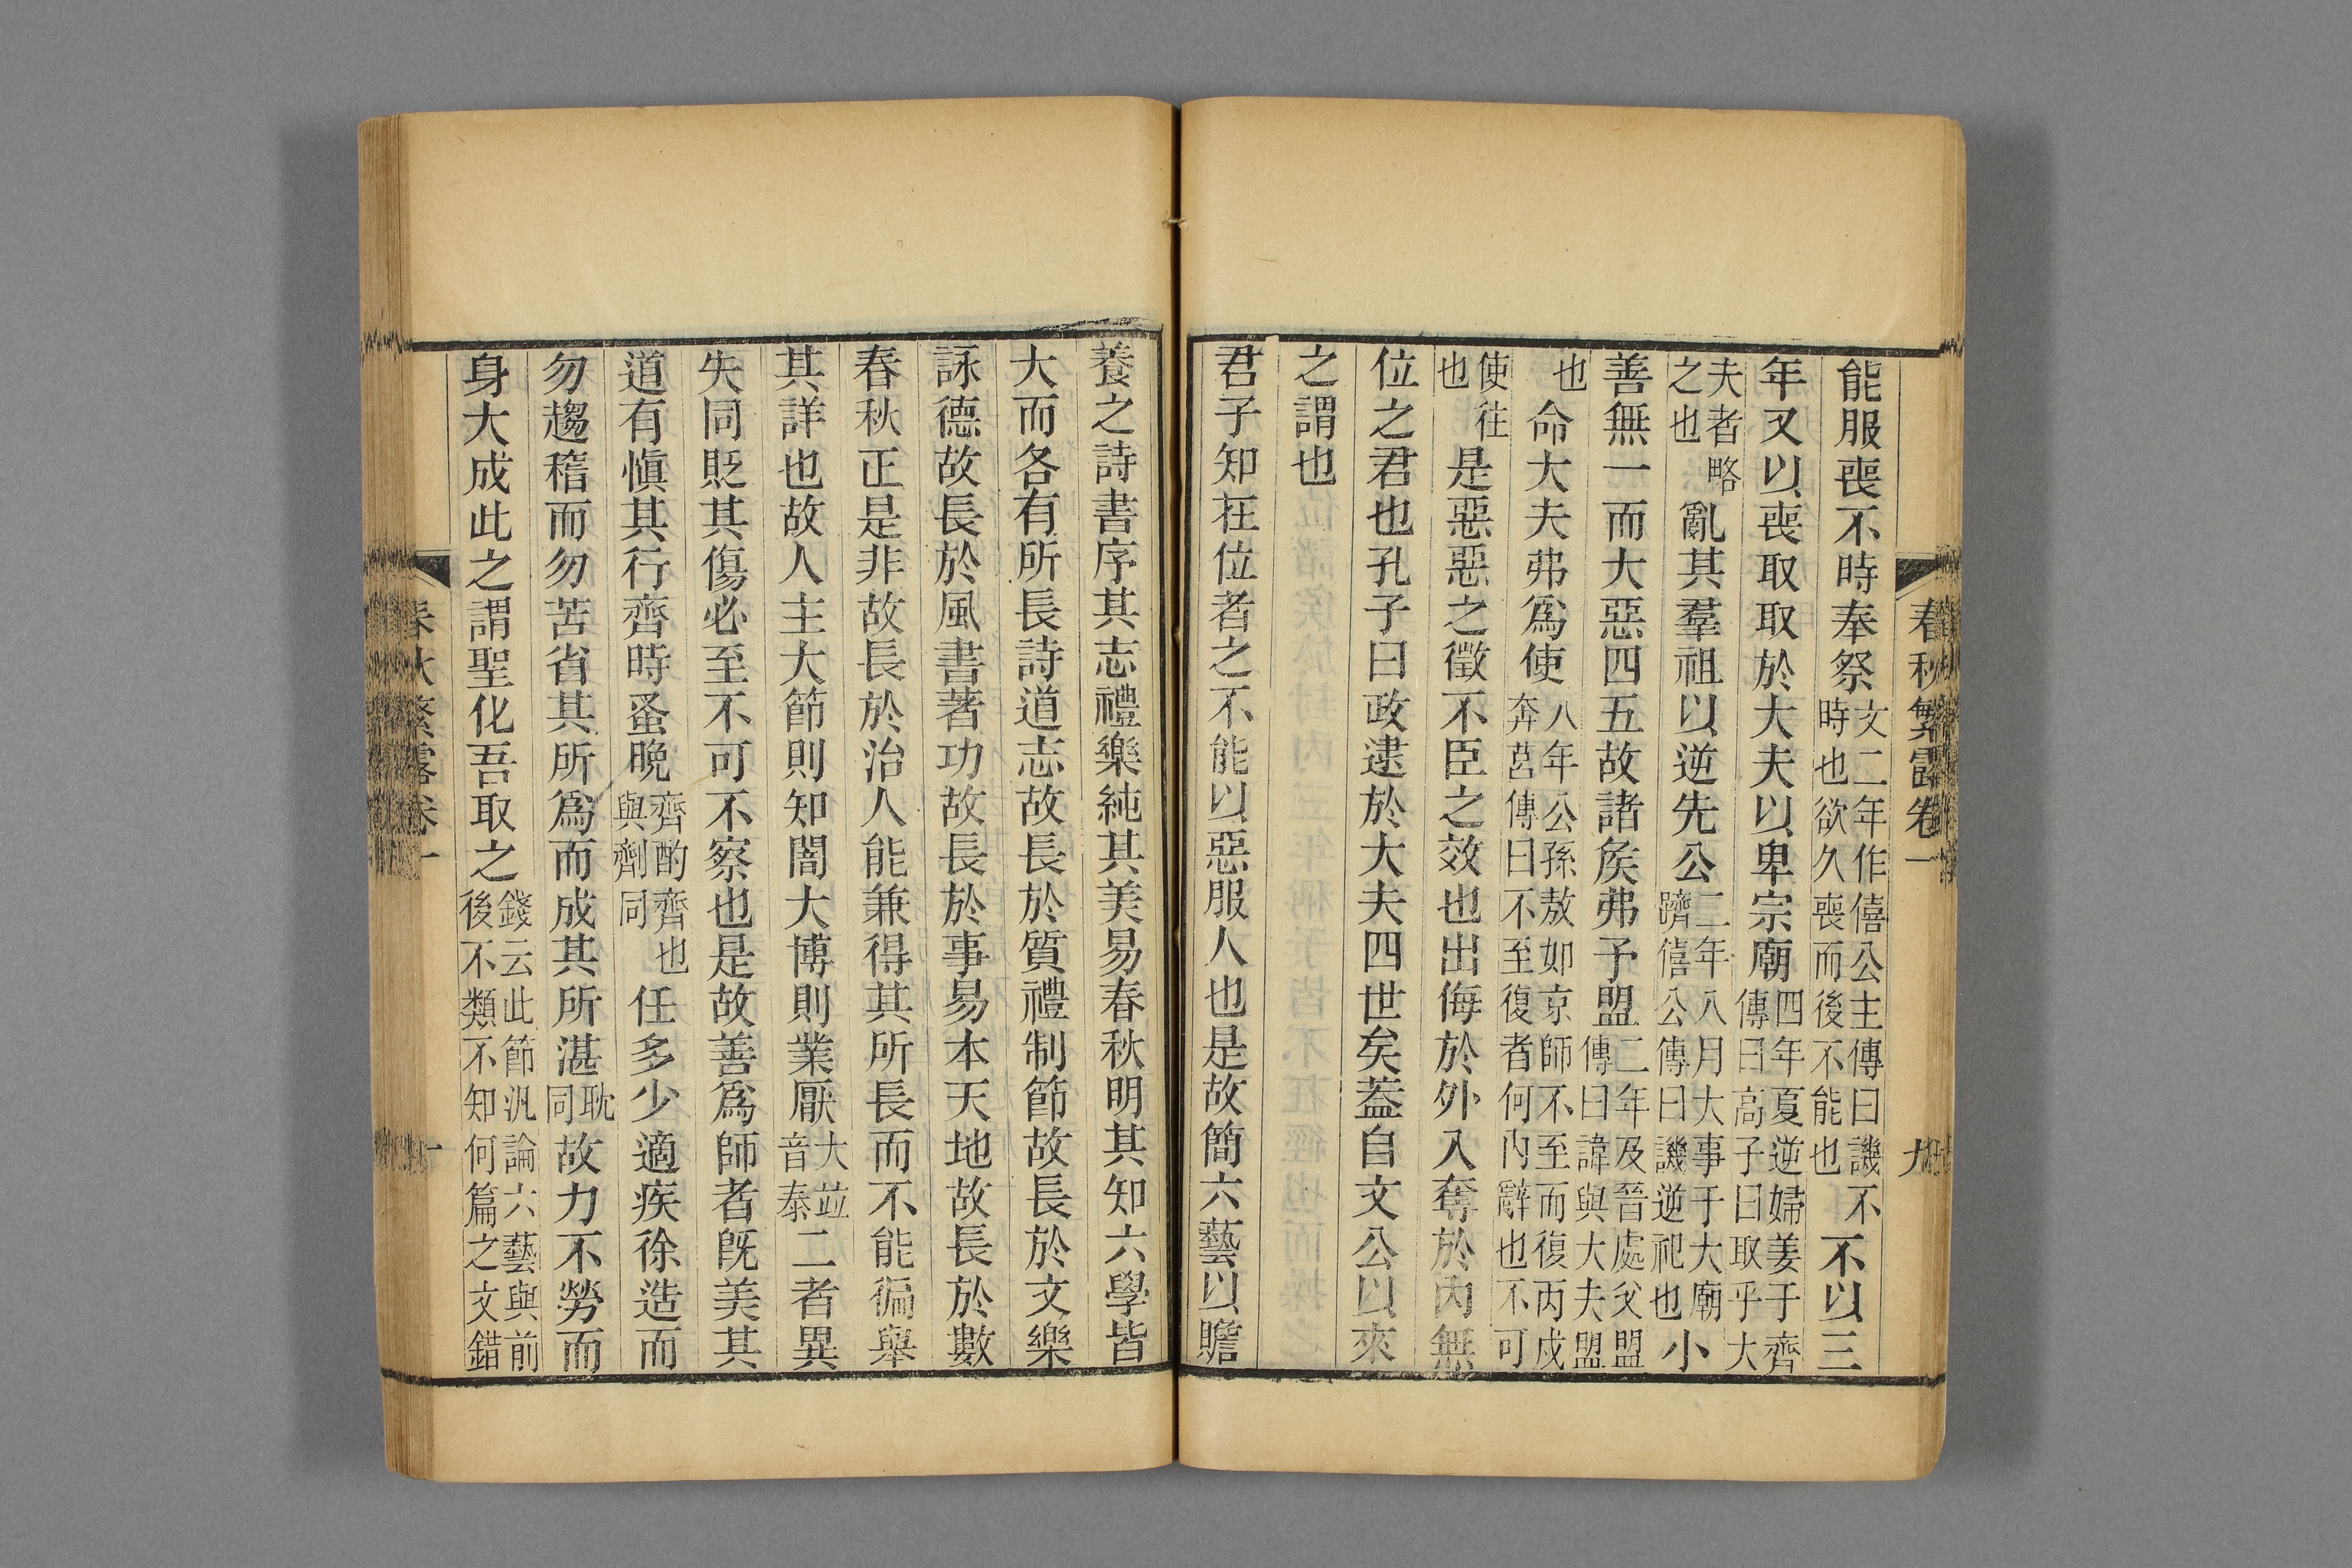 春秋繁露卷一　九
能服喪不時奉祭文二年作僖公主傳曰譏不時也欲久喪而後不能也不以三
年又以喪取取於大夫以卑宗廟四年夏逆婦姜于齊傳曰高子曰取乎大
夫者略之也亂其羣祖以逆先公二年八月大事于大廟躋僖公傳曰譏逆祀也小
善無一而大惡四五故諸矦弗予盟二年及晉處父盟傳曰諱與大夫盟
也命大夫弗爲使八年公孫敖如京師不至而復丙戌奔莒傳曰不至復者何內辭也不可
使往也是惡惡之徵不臣之效也出侮於外入奪於內無
位之君也孔子曰政逮於大夫四世矣葢自文公以來
之謂也
君子知在位者之不能以惡服人也是故簡六藝以贍
養之詩書序其志禮樂純其美易春秋明其知六學皆
大而各有所長詩道志故長於質禮制節故長於文樂
詠德故長於風書著功故長於事易本天地故長於數
春秋正是非故長於治人能兼得其所長而不能徧舉
其詳也故人主大節則知闇大博則業厭大竝音泰二者異
失同貶其傷必至不可不察也是故善爲師者旣美其
道有愼其行齊時蚤晚齊酌齊也與劑同任多少適疾徐造而
勿趨稽而勿苦省其所爲而成其所湛耽同故力不勞而
身大成此之謂聖化吾取之錢云此節汎論六藝與前後不類不知何篇之文錯
春秋繁露卷一　十